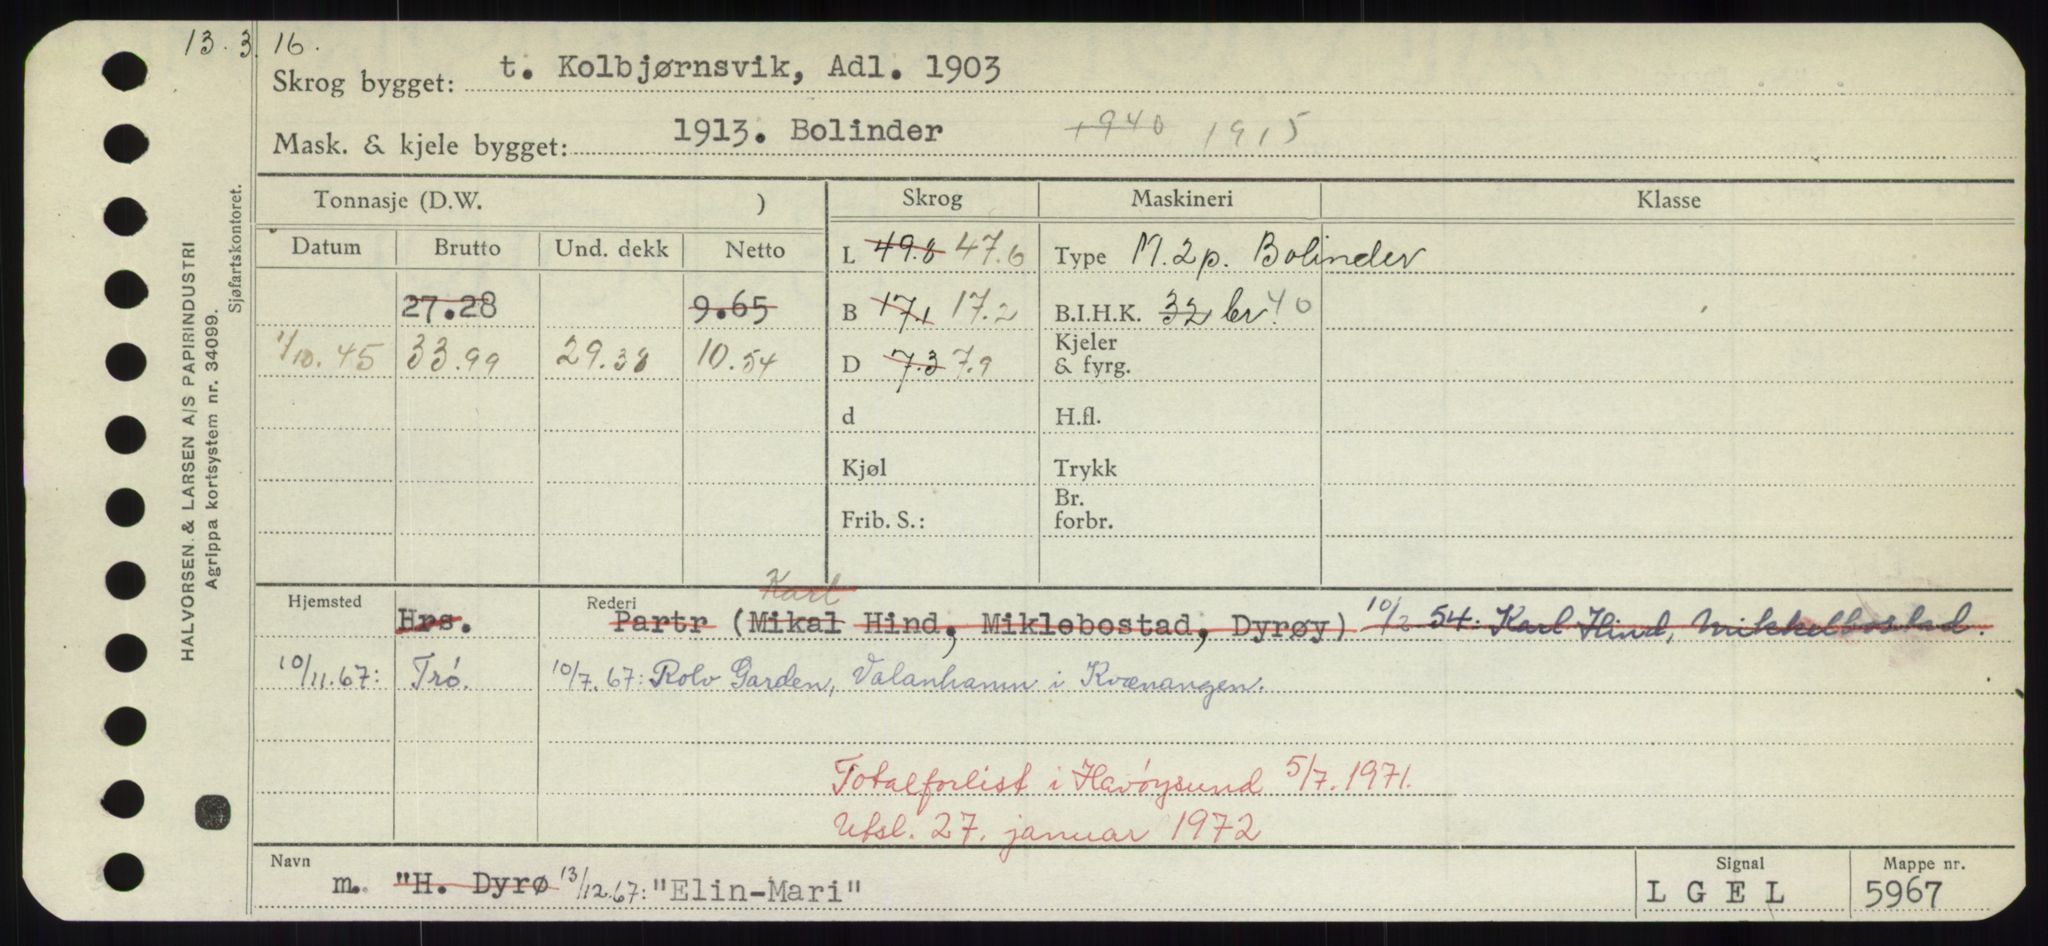 13.3.16.
Skrog bygget: t. Kolbjørnsvik, Adl. 1903
Mask. & kjele bygget: 1913. Bolinder 1940 1915
Tonnasje (D.W. ) Skrog Maskineri Klasse
Datum Brutto Und. dekk Netto L 49.8 47.6 Type M. 2p. Bolinder
27.28 9.65 B 17.1 17.2 B.I.H.K. 32 br. 40
1/10.45 33.99 29.38 10.54 D 7.3 7.9 Kjeler & fyrg.
d H.fl.
Kjøl Trykk
Frib. S.: Br. forbr.
Karl
Hjemsted Hrs. Rederi Partr (Mikal Hind, Miklebostad, Dyrøy) 10/2 54: Karl Hind, Mikkelbostad.
10/11.67: Trö. 10/7.67: Rolv Garden, Valanhamn i Kvænangen.
Totalforlist i Havöysund 5/7.1971.
Utsl. 27. januar 1972
Navn Signal Mappe nr.
m. "H. Dyrø 13/12.67: "Elin-Mari" L G E L 5967
HALVORSEN & LARSEN A/S PAPIRINDUSTRI
Agrippa kortsystem nr. 34099.
Sjøfartskontoret.